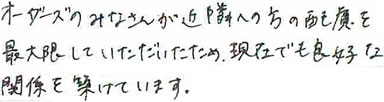 オーダーズのみなさんが近隣への方の配慮を
最大限していただいたため、現在でも良好な
関係を築けています。